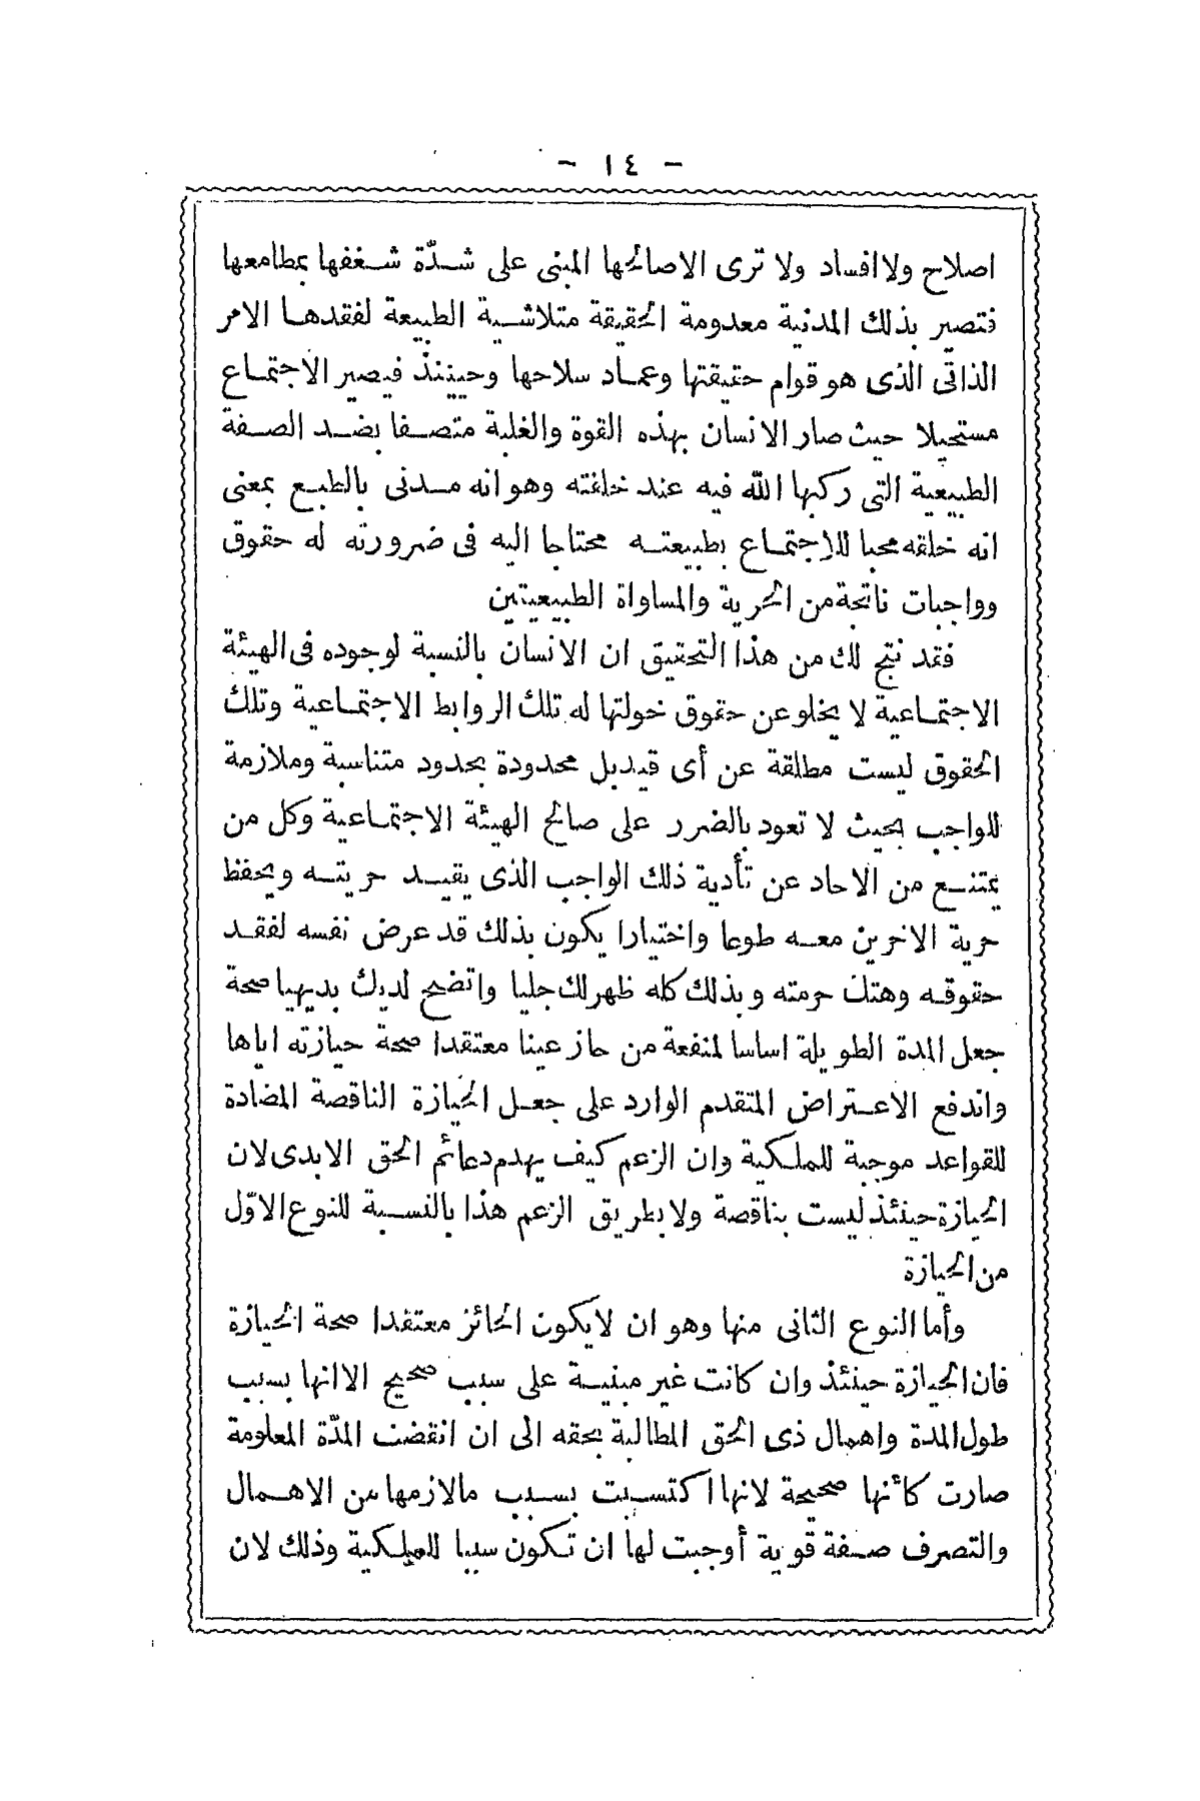 - ١٤ -
اصلاح ولا افساد ولا ترى الا صالحها المبنى على شدّة شغفها بمطامعها
فتصير بذلك المدنية معدومة الحقيقة متلاشية الطبيعة لفقدها الامر
الذاتى الذى هو قوام حقيقتها وعماد سلاحها وحينئذ فيصير الاجتماع
مستحيلا حيث صار الانسان بهذه القوة والغلبة متصفا بضد الصفة
الطبيعية التى ركبها الله فيه عند خلقته وهو انه مدنى بالطبع بمعنى
انه خلقه محبا للاجتماع بطبيعته محتاجا اليه فى ضرورته له حقوق
وواجبات ناتجة من الحرية والمساواة الطبيعيتين
فقد نتج لك من هذا التحقيق ان الانسان بالنسبة لوجوده فى الهيئة
الاجتماعية لا يخلو عن حقوق خولتها له تلك الروابط الاجتماعية وتلك
الحقوق ليست مطلقة عن أى قيد بل محدودة بحدود متناسبة وملازمة
للواجب بحيث لا تعود بالضرر على صالح الهيئة الاجتماعية وكل من
يمتنع من الاحاد عن تأدية ذلك الواجب الذى يقيد حريته ويحفظ
حرية الاخرين معه طوعا واختيارا يكون بذلك قد عرض نفسه لفقد
حقوقه وهتك حرمته وبذلك كله ظهر لك جليا واتضح لديك بديهيا صحة
جعل المدة الطويلة اساسا لمنفعة من حاز عينا معتقدا صحة حيازته اياها
واندفع الاعتراض المتقدم الوارد على جعل الحيازة الناقصة المضادة
للقواعد موجبة للملكية وان الزعم كيف يهدم دعائم الحق الابدى لان
الحيازة حينئذ ليست بناقصة ولا بطريق الزعم هذا بالنسبة للنوع الاوّل
من الحيازة
وأما النوع الثانى منها وهو ان لا يكون الحائز معتقدا صحة الحيازة
فان الحيازة حينئذ وان كانت غير مبنية على سبب صحيح الا انها بسبب
طول المدة واهمال ذى الحق المطالبة بحقه الى ان انقضت المدّة المعلومة
صارت كأنها صحيحة لانها اكتسبت بسبب مالازمها من الاهمال
والتصرف صفة قوية أوجبت لها ان تكون سببا للملكية وذلك لان